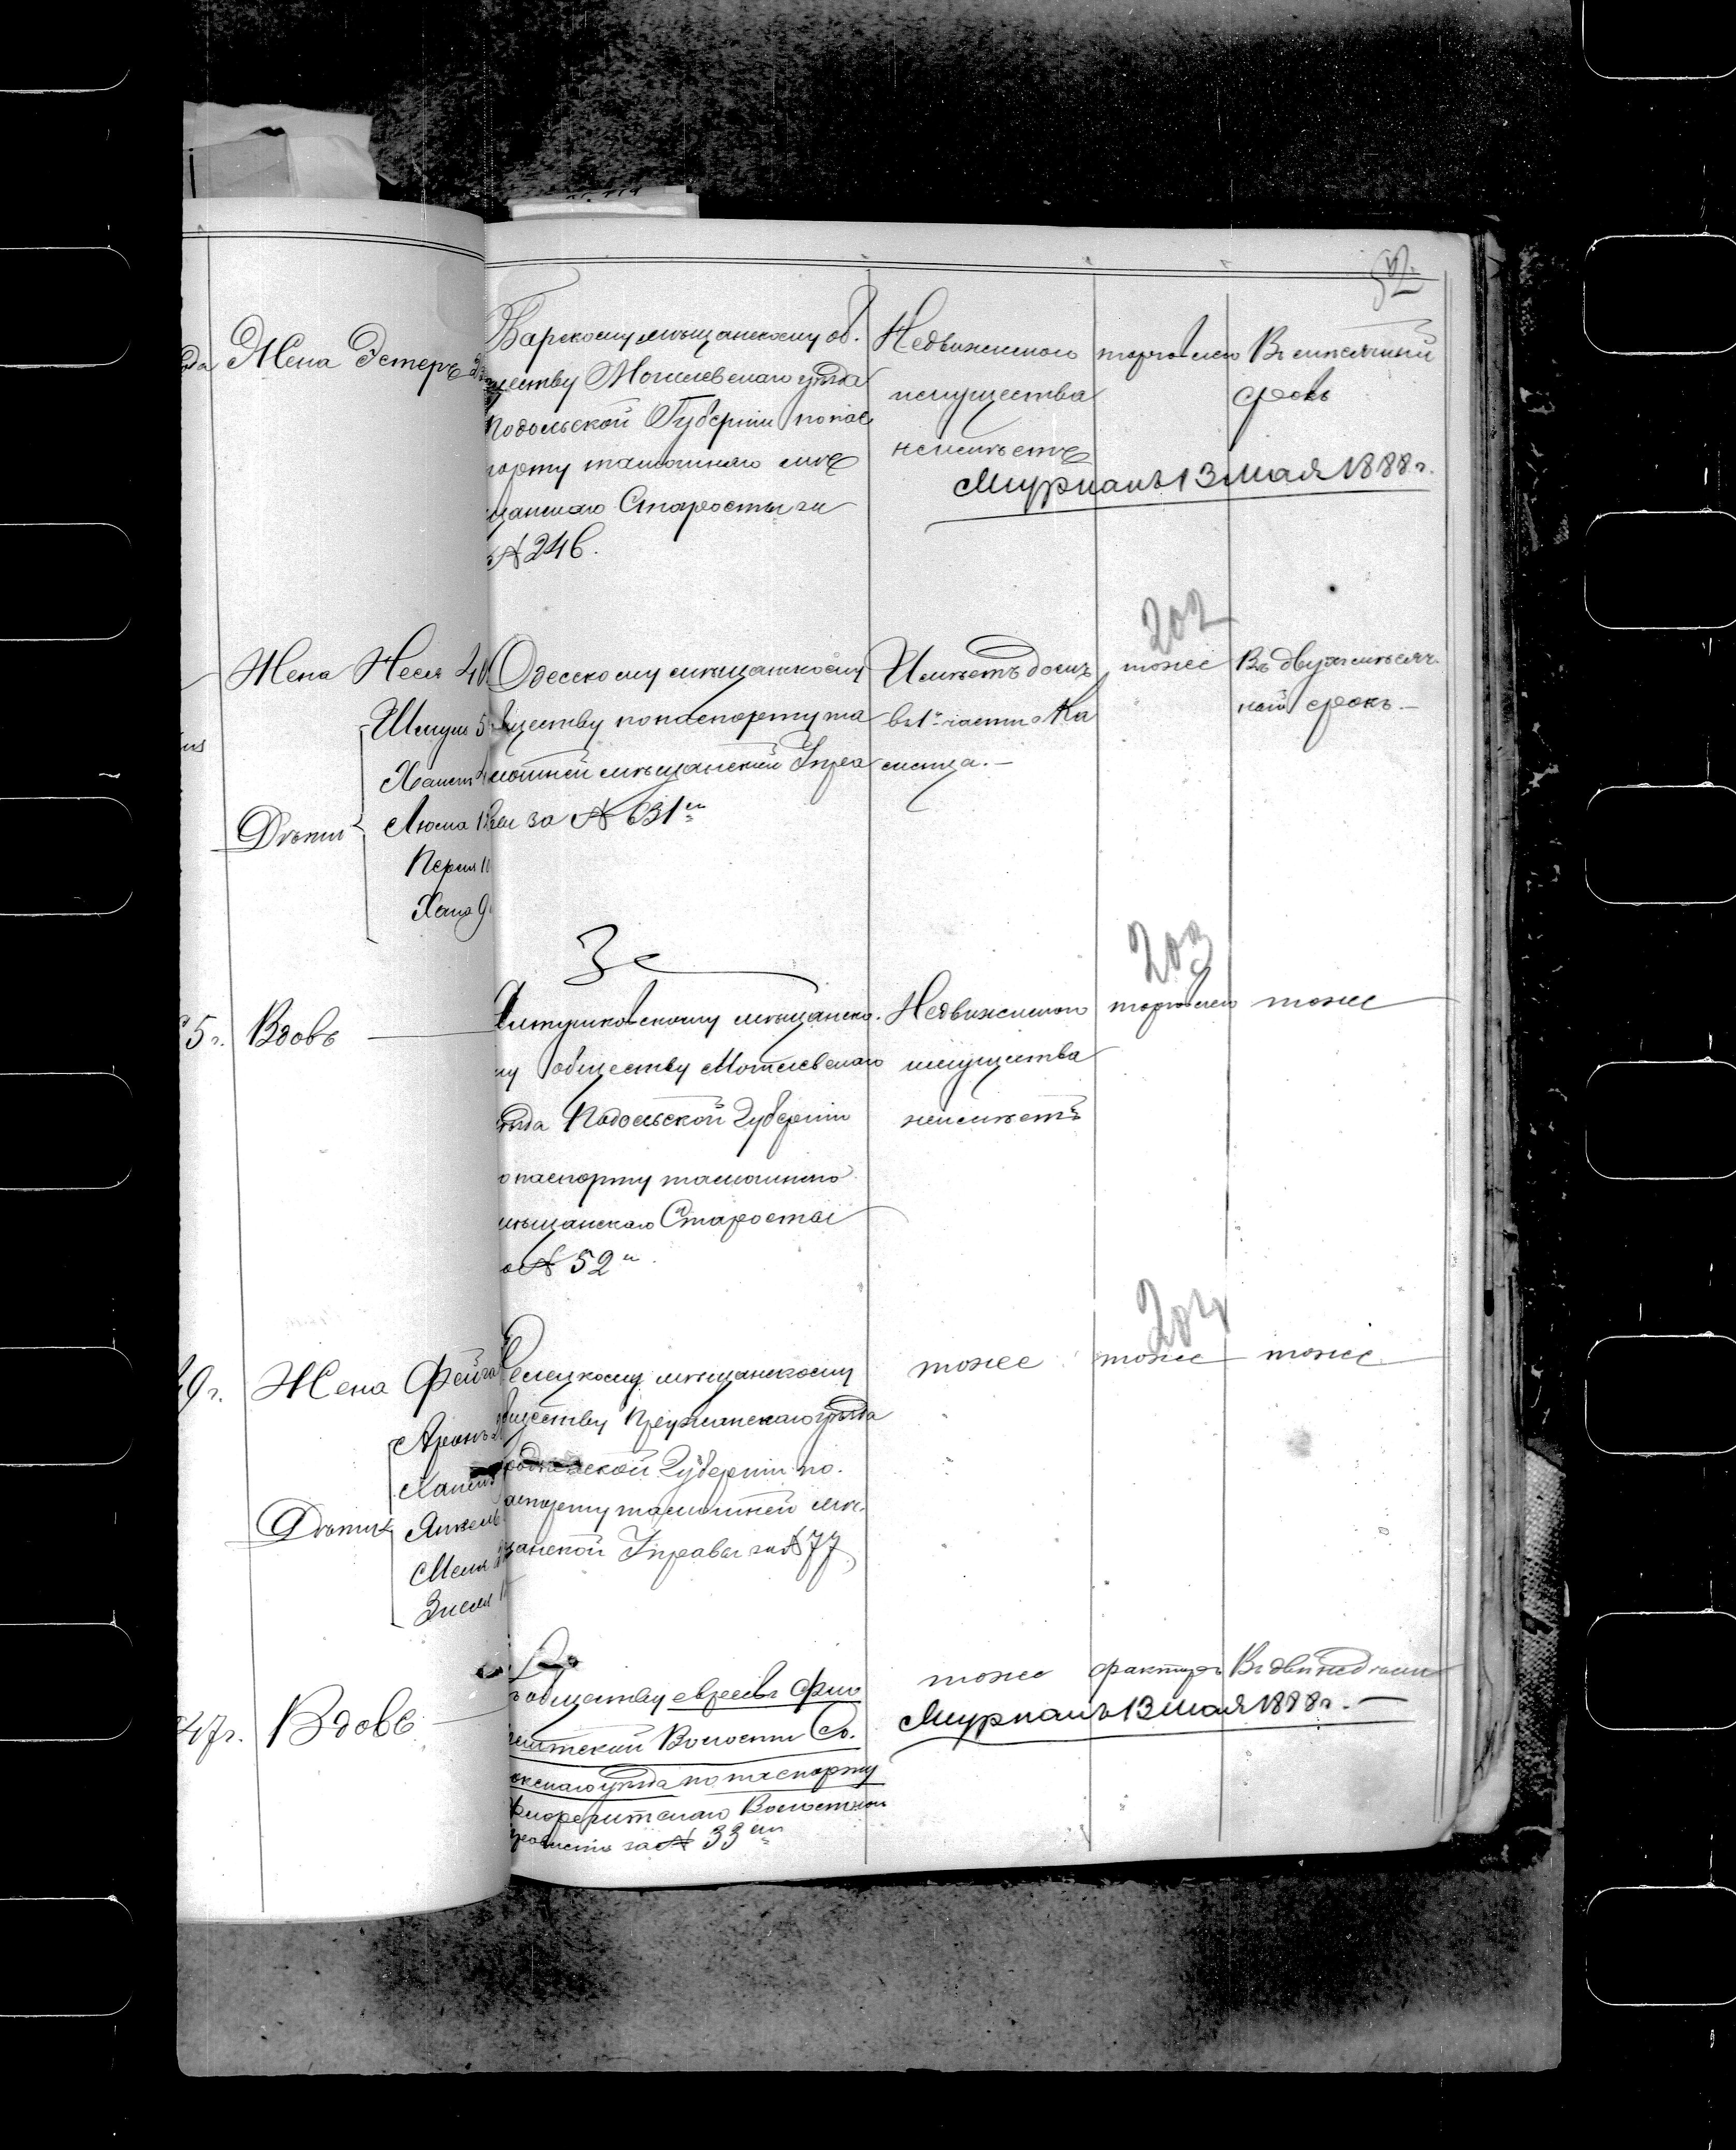 52.
Жена Эстеръ
Барскому мѣщанскому об.
ществу Могилевскаго уѣзда
Подольской Губерніи по пас
порту тамошняго мѣ
щанскаго Старосты за
№ 246.
Недвижимаго
имущества
неимѣетъ
торговлею
Въ мѣсячный
срокъ
Мурманъ 13 Мая 1888 г.
202
Жена Неся 40
Дѣти
Шмуль
Хаим
Люма
Перля
Хана 9
Одесскому мѣщанскому
ществу по паспорту та
мошней мѣщанской Упра
вы за № 631м
Имѣетъ домъ
въ 1й части Ка
меница.—
тоже
Въ двухмѣсяч.
ный срокъ.—
203
5 г. Вдовъ
мѣщанско.
му обществу Могилевскаго
уѣзда Подольской Губерніи
о паспорту тамошняго
мѣщанскаго Старосты
№ 52м
Недвижимаго
имущества
неимѣетъ
торговлею
тоже
204
9 г. Жена Фейга
Дѣти
Аронъ
Хаим
Янкель
Зисля
мѣщанскому
ществу Пружанскаго уѣзда
Губерніи по.
аспорту тамошней мѣ.
щанской Управы за № 77
тоже
тоже
тоже
47 г. Вдовъ
обществу евреевъ Фло
Волости Со.
уѣзда по паспорту
Волостнаго
за № 33м
тоже
факторъ
Въ двѣ недѣли
Мурманъ 13 мая 1888 г.—